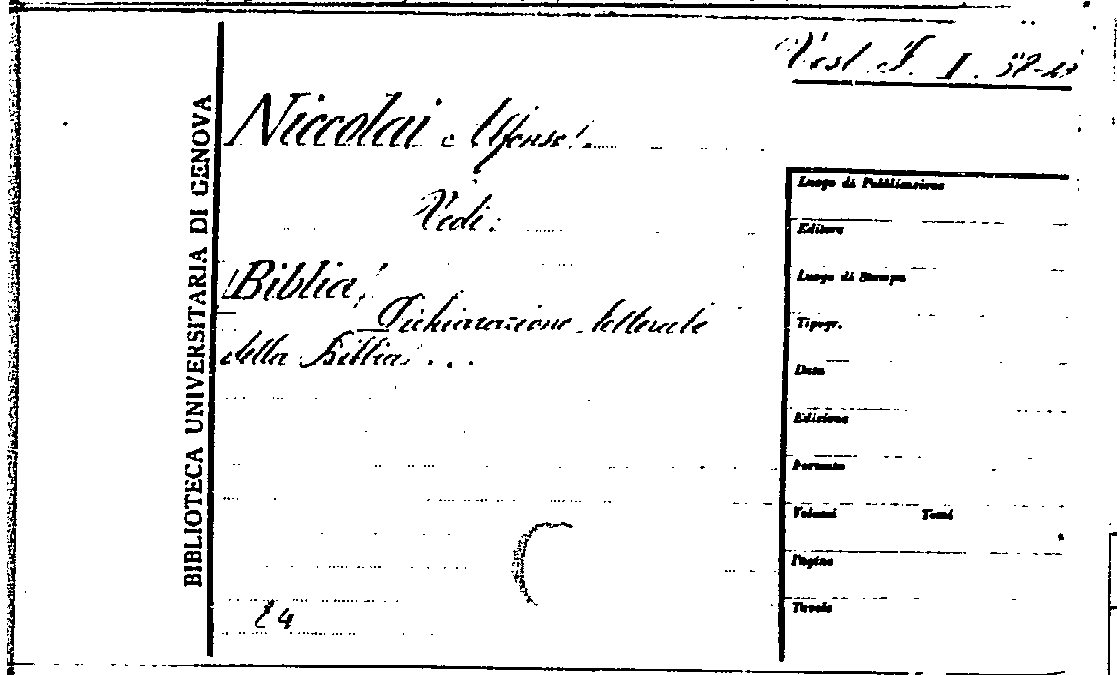 Vest. I. 
BIBLIOTECA UNIVERSITARIA DI GENOVA
Niccolai Alfonso.
Vedi:
Biblia.
Dichiarazione letterale
della Bibbia . . .
Luogo di Pubblicazione
Editore
Luogo di Stampa
Tipogr.
Data
Edizione
Formato
Volumi Tomi
Pagine
Tavole